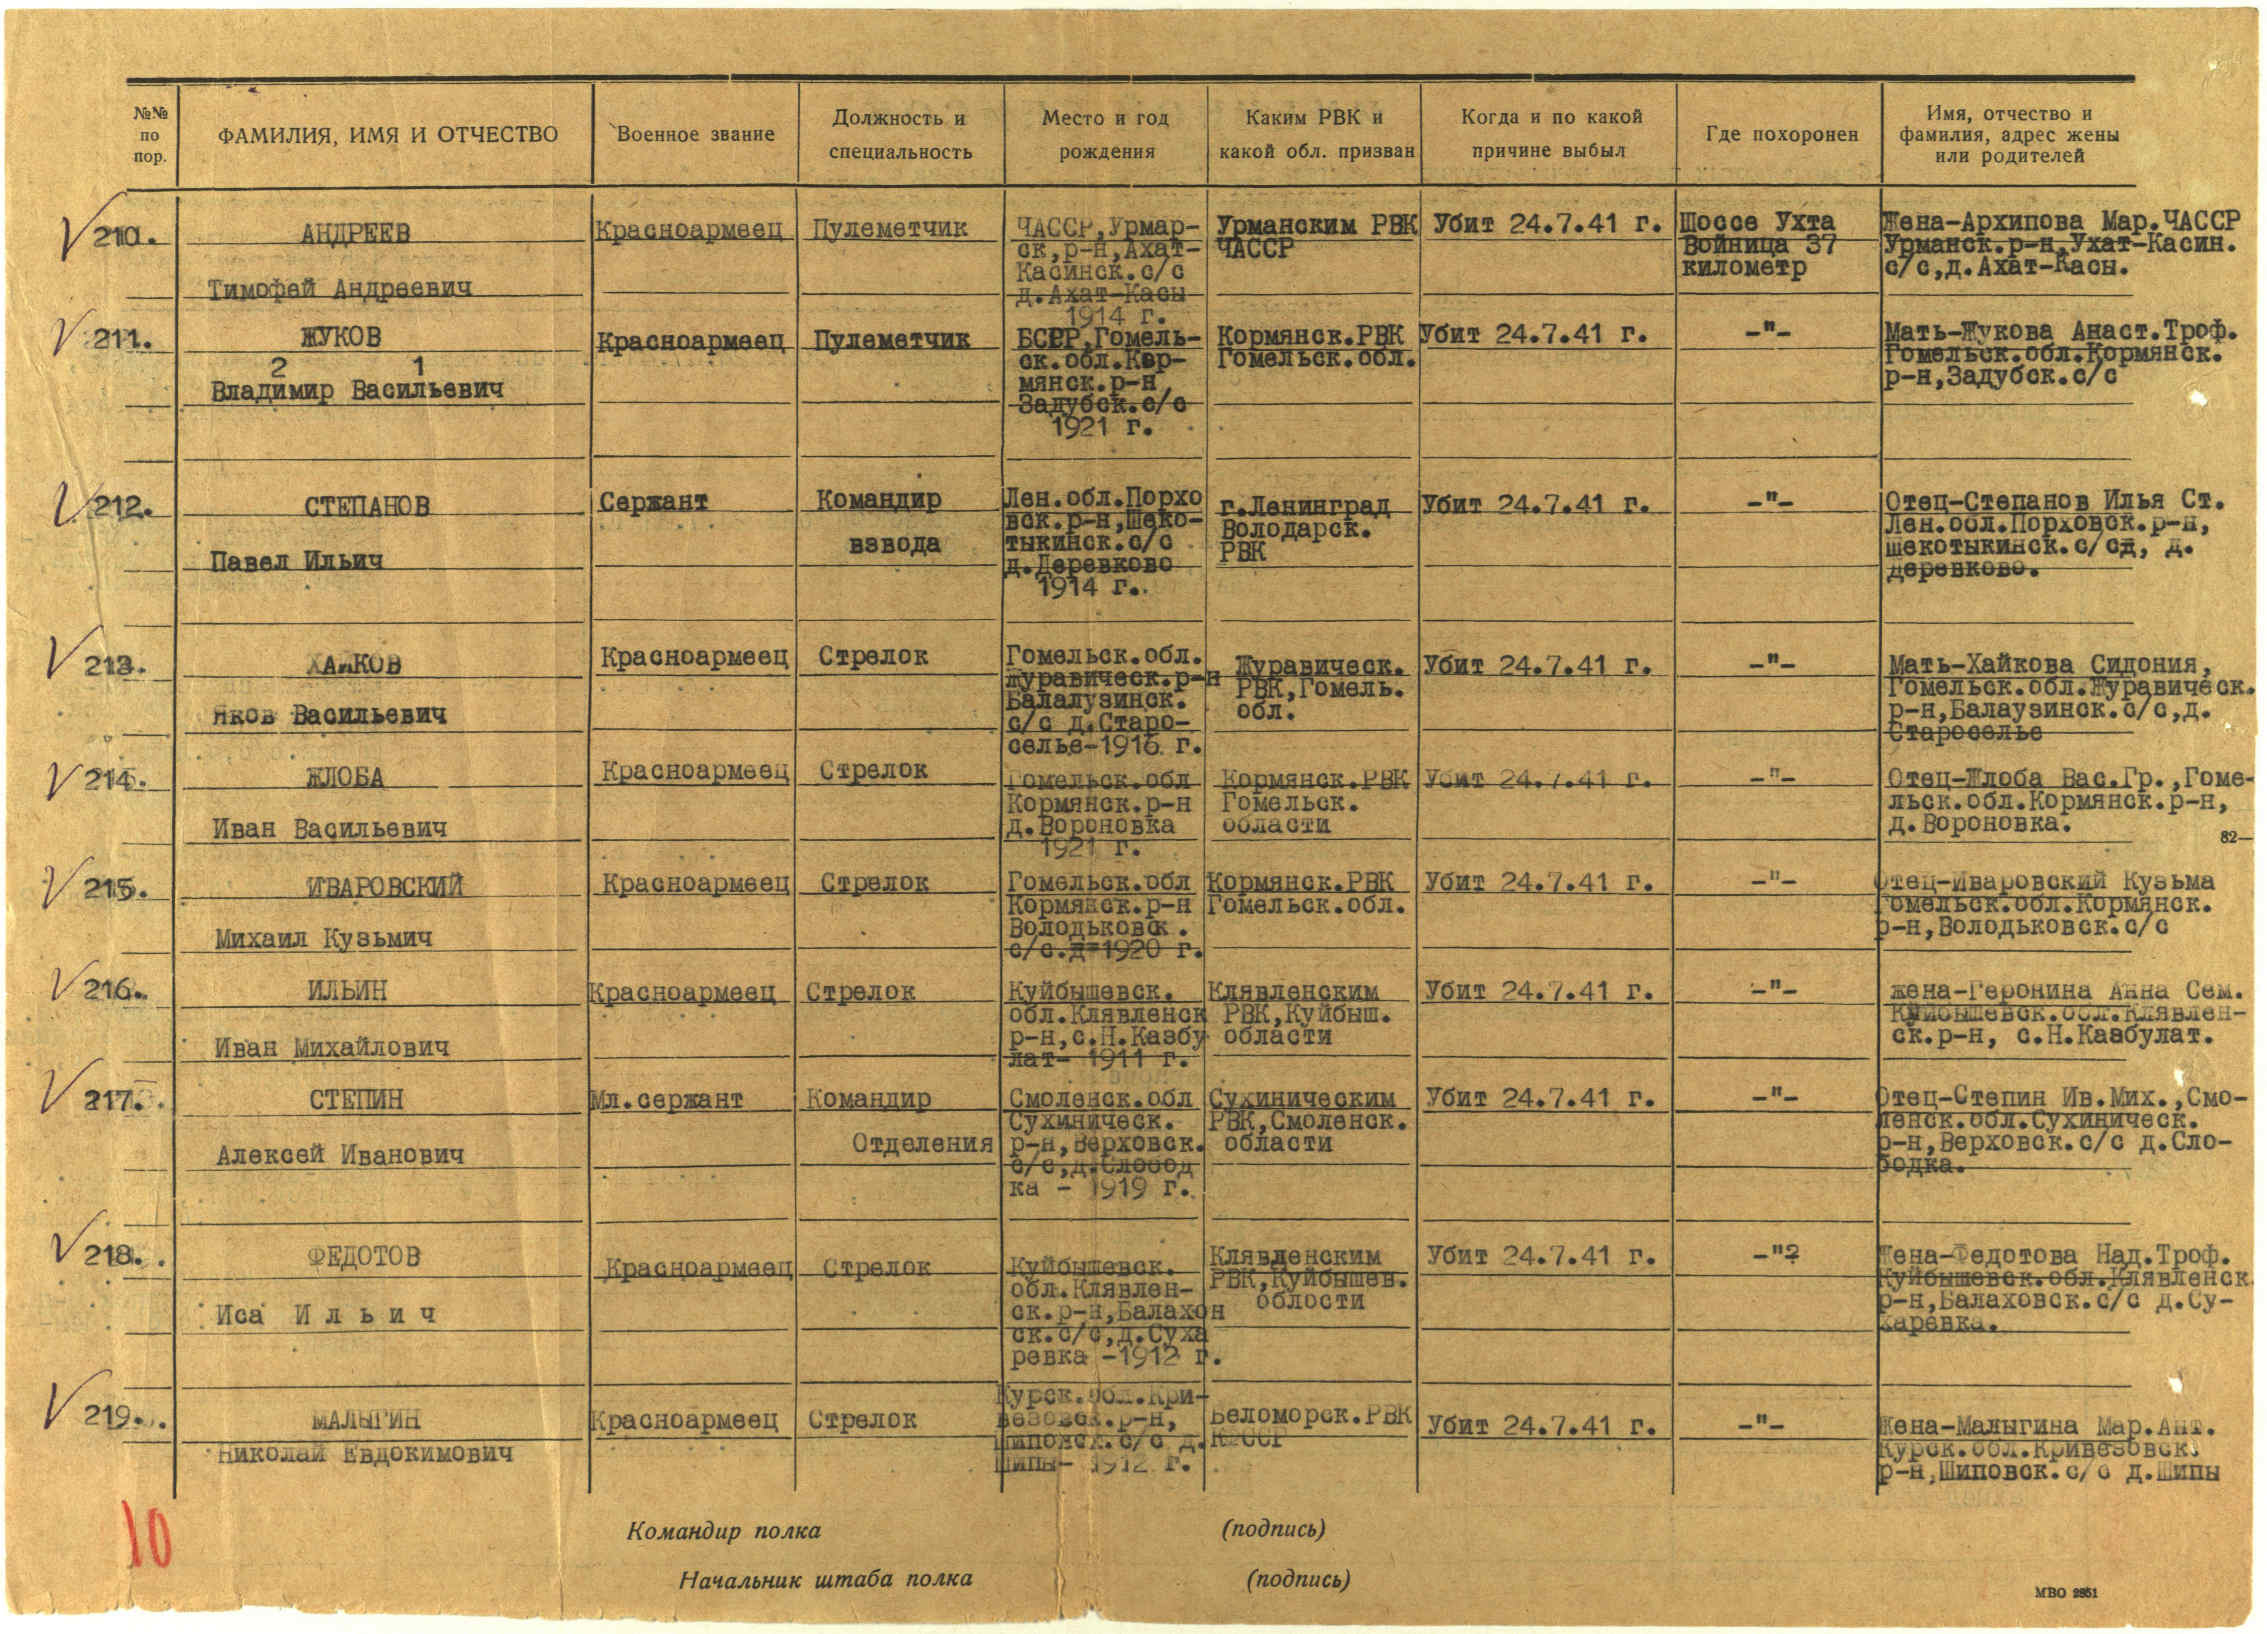 №№ по пор.
ФАМИЛИЯ, ИМЯ И ОТЧЕСТВО
Военное звание
Должность и специальность
Место и год рождения
Каким РВК и какой обл. призван
Когда и по какой причине выбыл
Где похоронен
Имя, отчество и фамилия, адрес жены или родителей
210.
АНДРЕЕВ
Тимофей Андреевич
Красноармеец
Пулеметчик
ЧАССР,Урмар-
ск,р-н,Ахат-
Касинск.с/с
д.Ахат-Касы
1914 г.
Урманским РВК
ЧАССР
Убит 24.7.41 г.
Шоссе Ухта
Войница 37
километр
Жена-Архипова Мар.ЧАССР
Урманск.р-н,Ухат-Касин.
с/с,д.Ахат-Касы.
211.
ЖУКОВ
2 1
Владимир Васильевич
Красноармеец
Пулеметчик
БССР,Гомель-
ск.обл.Кор-
мянск.р-н,
Задубск.с/с
1921 г.
Кормянск.РВК
Гомельск.обл.
Убит 24.7.41 г.
-"-
Мать-Жукова Анаст.Троф.
Гомельск.обл.Кормянск.
р-н,Задубск.с/с
212.
СТЕПАНОВ
Павел Ильич
Сержант
Командир
взвода
Лен.обл.Порхо
вск.р-н,Шеко-
тыкинск.с/с
д.Деревково
1914 г..
г.Ленинград
Володарск.
РВК
Убит 24.7.41 г.
-"-
Отец-Степанов Илья Ст.
Лен.обл.Порховск.р-н,
Шекотыкинск.с/сд, д.
деревково.
213.
ХАЙКОВ
Яков Васильевич
Красноармеец
Стрелок
Гомельск.обл.
Журавическ.р-н
Балалузинск.
с/с д.Старо-
селье-1916 г.
Журавическ.
РВК,Гомель.
обл.
Убит 24.7.41 г.
-"-
Мать-Хайкова Сидония,
Гомельск.обл.Журавическ.
р-н,Балаузинск.с/с,д.
Староселье
214.
ЖЛОБА
Иван Васильевич
Красноармеец
Стрелок
Гомельск.обл
Кормянск.р-н
д.Вороновка
1921 г.
Кормянск.РВК
Гомельск.
области
Убит 24.7.41 г.
-"-
Отец-Жлоба Вас.Гр.,Гоме-
льск.обл.Кормянск.р-н,
д.Вороновка.
82—
215.
ИВАРОВСКИЙ
Михаил Кузьмич
Красноармеец
Стрелок
Гомельск.обл
Кормянск.р-н
Володьковск.
с/с.д-1920 г.
Кормянск.РВК
Гомельск.обл.
Убит 24.7.41 г.
-"-
Отец-Иваровский Кузьма
Гомельск.обл.Кормянск.
р-н,Володьковск.с/с
216.
ИЛЬИН
Иван Михайлович
Красноармеец
Стрелок
Куйбышевск.
обл.Клявленск
р-н,с.Н.Казбу
лат- 1911 г.
Клявленским
РВК,Куйбыш.
области
Убит 24.7.41 г.
-"-
жена-Геронина Анна Сем.
Куйбышевск.обл.Клявлен-
ск.р-н, с.Н.Казбулат.
217.
СТЕПИН
Алексей Иванович
Мл.сержант
Командир
Отделения
Смоленск.обл
Сухиническ.
р-н,Верховск.
с/с,д.Слобод
ка - 1919 г.
Сухиническим
РВК,Смоленск.
области
Убит 24.7.41 г.
-"-
Отец-Степин Ив.Мих.,Смо-
ленск.обл.Сухиническ.
р-н,Верховск.с/с д.Сло-
бодка.
218.
ФЕДОТОВ
Иса И л ь и ч
Красноармеец
Стрелок
Куйбышевск.
обл.Клявлен-
ск.р-н,Балахон
ск.с/с,д.Суха
ревка -1912 г.
Клявденским
РВК,Куйбышев.
облости
Убит 24.7.41 г.
-"?
Жена-Федотова Над.Троф.
Куйбышевск.обл.Клявленск.
р-н,Балаховск.с/с д.Су-
харевка.
219.
МАЛЫГИН
Николай Евдокимович
Красноармеец
Стрелок
Курск.обл.Кри-
везовск.р-н,
Шиповск.с/с д.
Шипы- 1912 г.
Беломорск.РВК
КФССР
Убит 24.7.41 г.
-"-
Жена-Малыгина Мар.Ант.
Курск.обл.Кривезовск.
р-н,Шиповск.с/с д.Шипы
10
Командир полка (подпись)
Начальник штаба полка (подпись)
МВО 2851